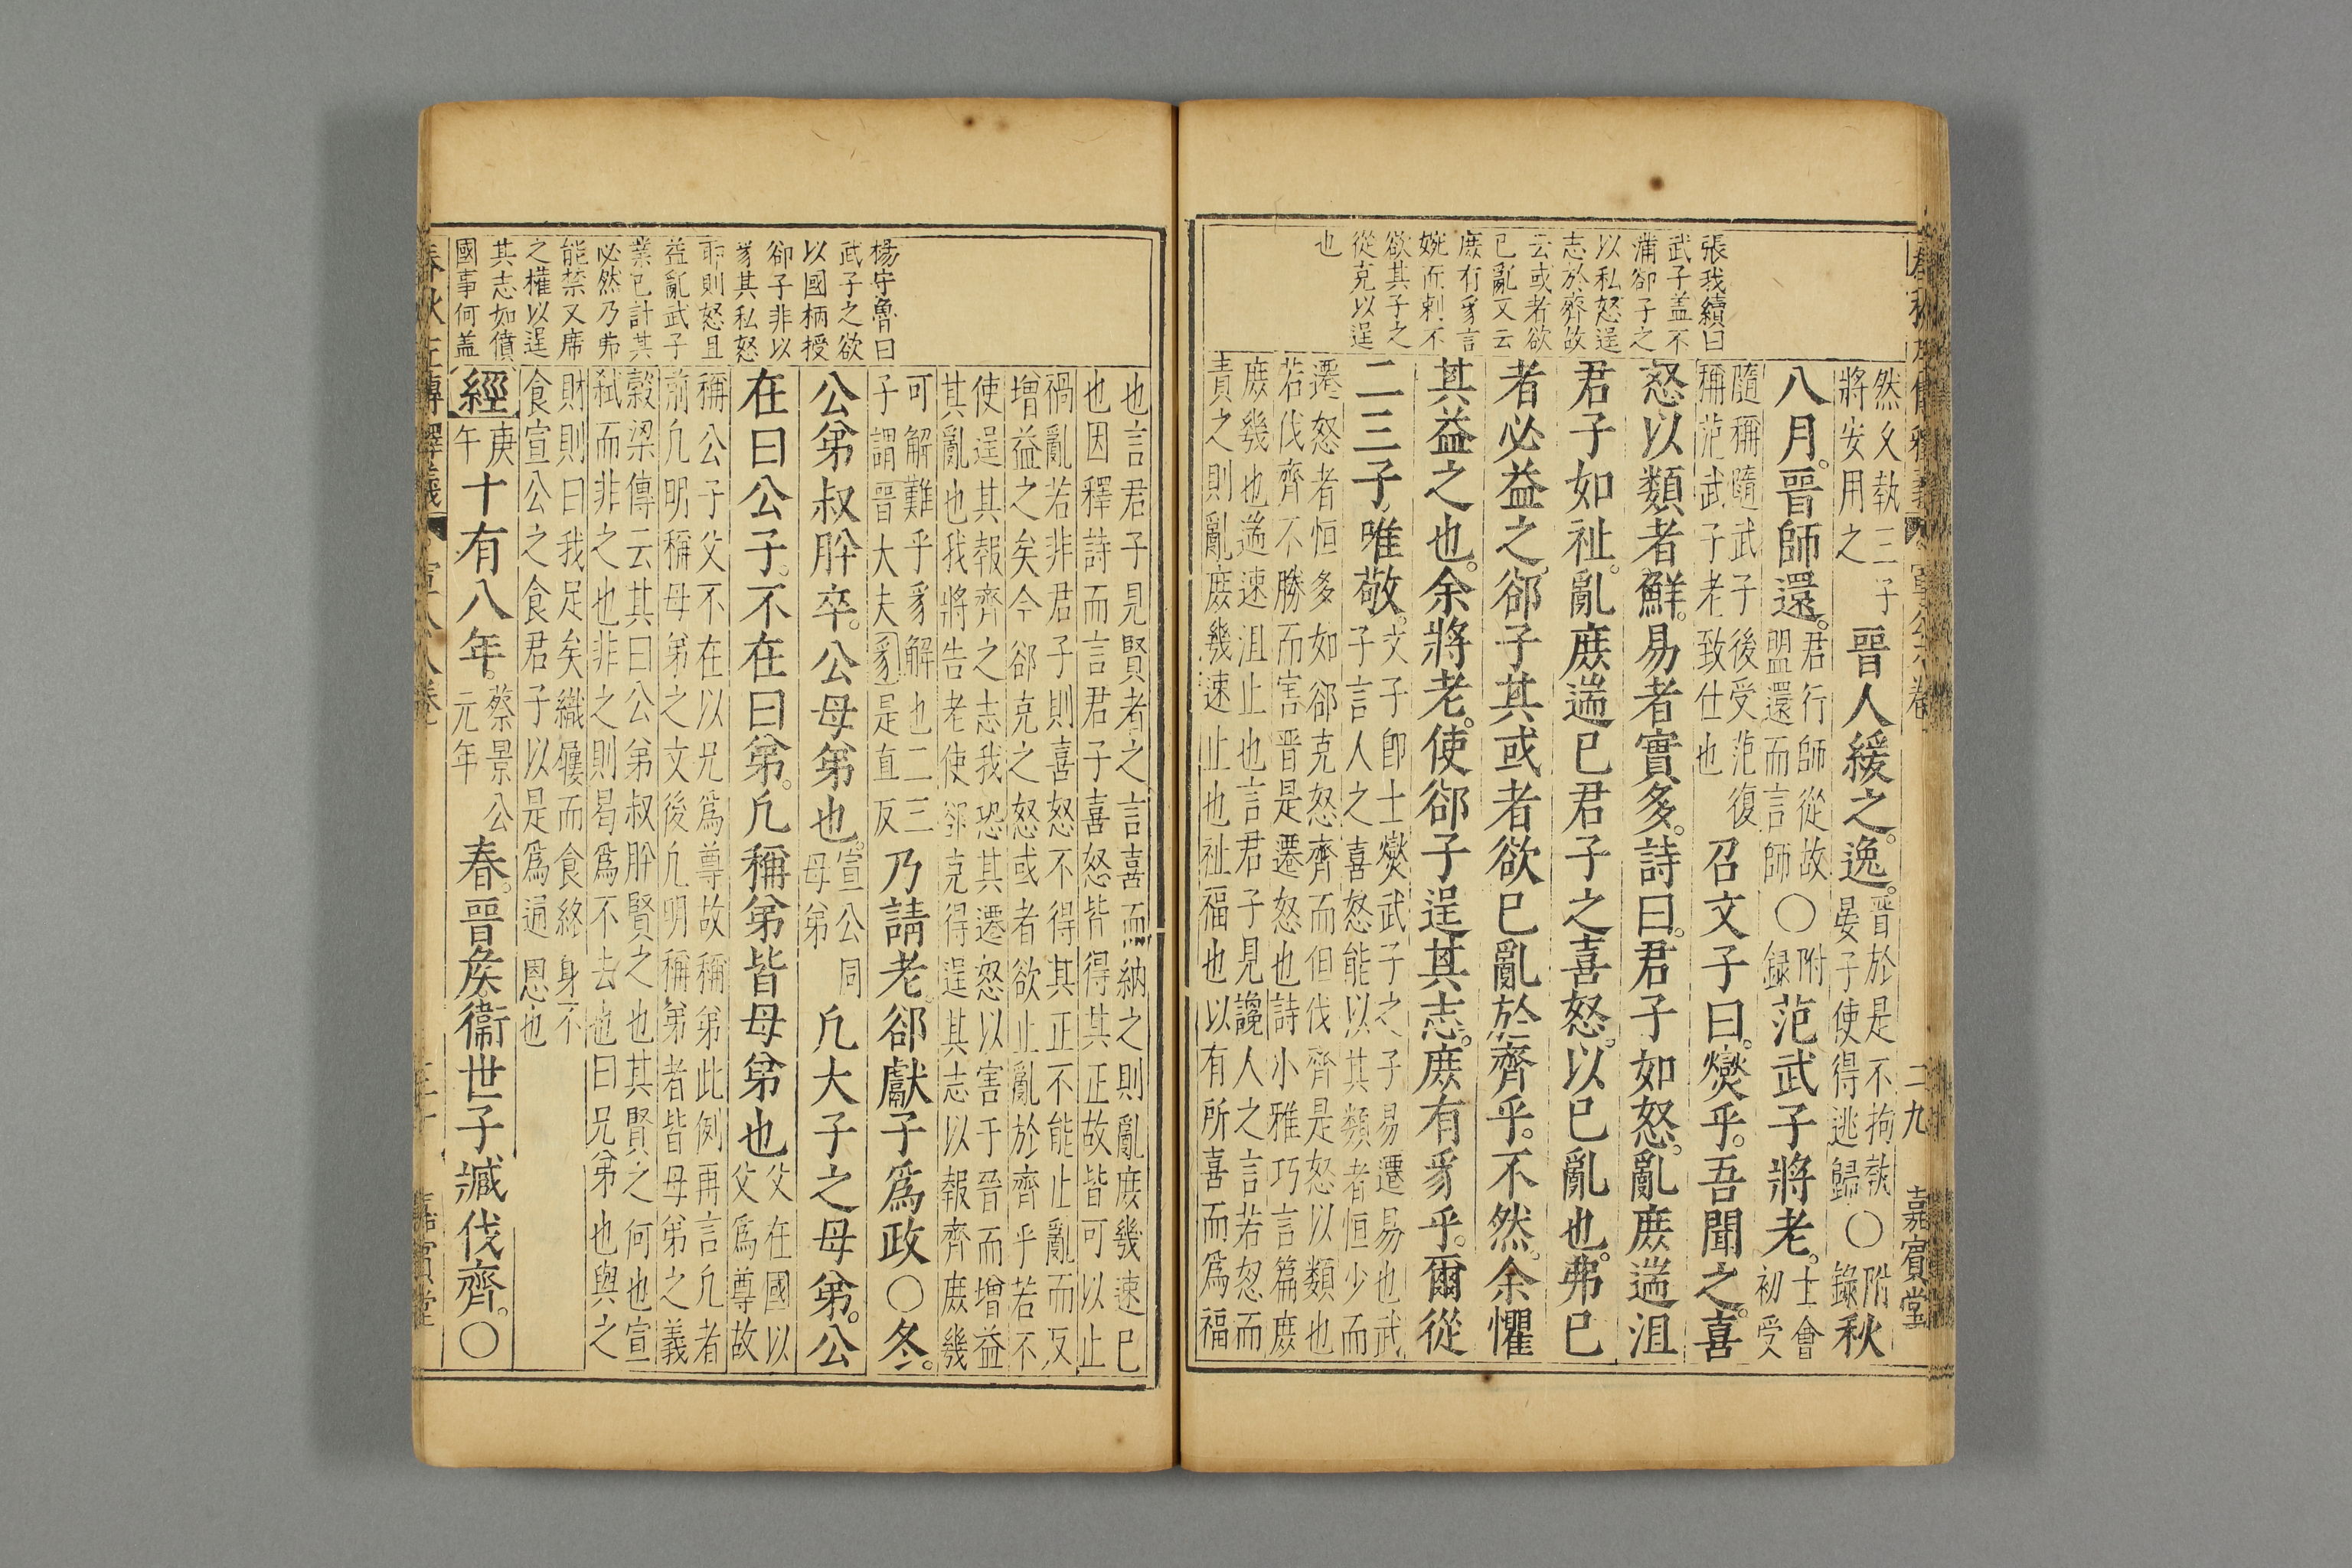 張我續曰
武子蓋不
滿郤子之
以私怒逞
志於齊故
云或者欲
已亂又云
庶有豸言
婉而刺不
欲其子之
從克以逞
也
然文執三子
將安用之
晉人緩之。逸。
晉於是不拘執
晏子使得逃歸
〇
附
錄
秋
八月。晉師還。
君行師從故
盟還而言師
〇
附
録
范武子將老。
士會
初受
隨稱隨武子後受范復
稱范武子老致仕也
召文子曰。燮乎。吾聞之。喜
怒以類者鮮。易者實多。詩曰。君子如怒。亂庶遄沮
君子如祉。亂庶遄已君子之喜怒。以已亂也。弗已
者必益之。郤子其或者欲已亂於齊乎。不然。余懼
其益之也。余將老。使郤子逞其志。庶有豸乎。爾從
二三子唯敬。
文子卽士燮武子之子易遷易也武
子言人之喜怒能以其類者恒少而
遷怒者恒多如郤克怒齊而但伐齊是怒以類也
若伐齊不勝而害晋是遷怒也詩小雅巧言篇庶
庶幾也遄速沮止也言君子見讒人之言若怒而
責之則亂庶幾速止也祉福也以有所喜而爲福
二九
嘉賓堂
楊守魯曰
武子之欲
以國柄授
郤子非以
豸其私怒
耶則怒且
益亂武子
業已計其
必然乃弗
能禁又席
之權以逞
其志如僨
國事何蓋
也言君子見賢者之言喜而納之則亂庶幾速已
也因釋詩而言君子喜怒皆得其正故皆可以止
禍亂若非君子則喜怒不得其正不能止亂而反
增益之矣今郤克之怒或者欲止亂於齊乎若不
使逞其報齊之志我恐其遷怒以害于晉而增益
其亂也我將告老使郤克得逞其志以報齊庶幾
可解難乎豸解也二三
子謂晉大夫豸是直反
乃請老。郤獻子爲政〇冬。
公弟叔肸卒。公母弟也。
宣公同
母弟
凡大子之母弟。公
在曰公子。不在曰弟。凡稱弟皆母弟也
父在國以
父爲尊故
稱公子父不在以兄爲尊故稱弟此例再言凡者
前凡明稱母弟之文後凡明稱弟者皆母弟之義
穀梁傳云其曰公弟叔肸賢之也其賢之何也宣
弑而非之也非之則曷爲不去也曰兄弟也與之
財則曰我足矣織屨而食終身不
食宣公之食君子以是爲通恩也
經
庚
午
十有八年。
蔡景公
元年
春。晉矦衞世子臧伐齊。〇